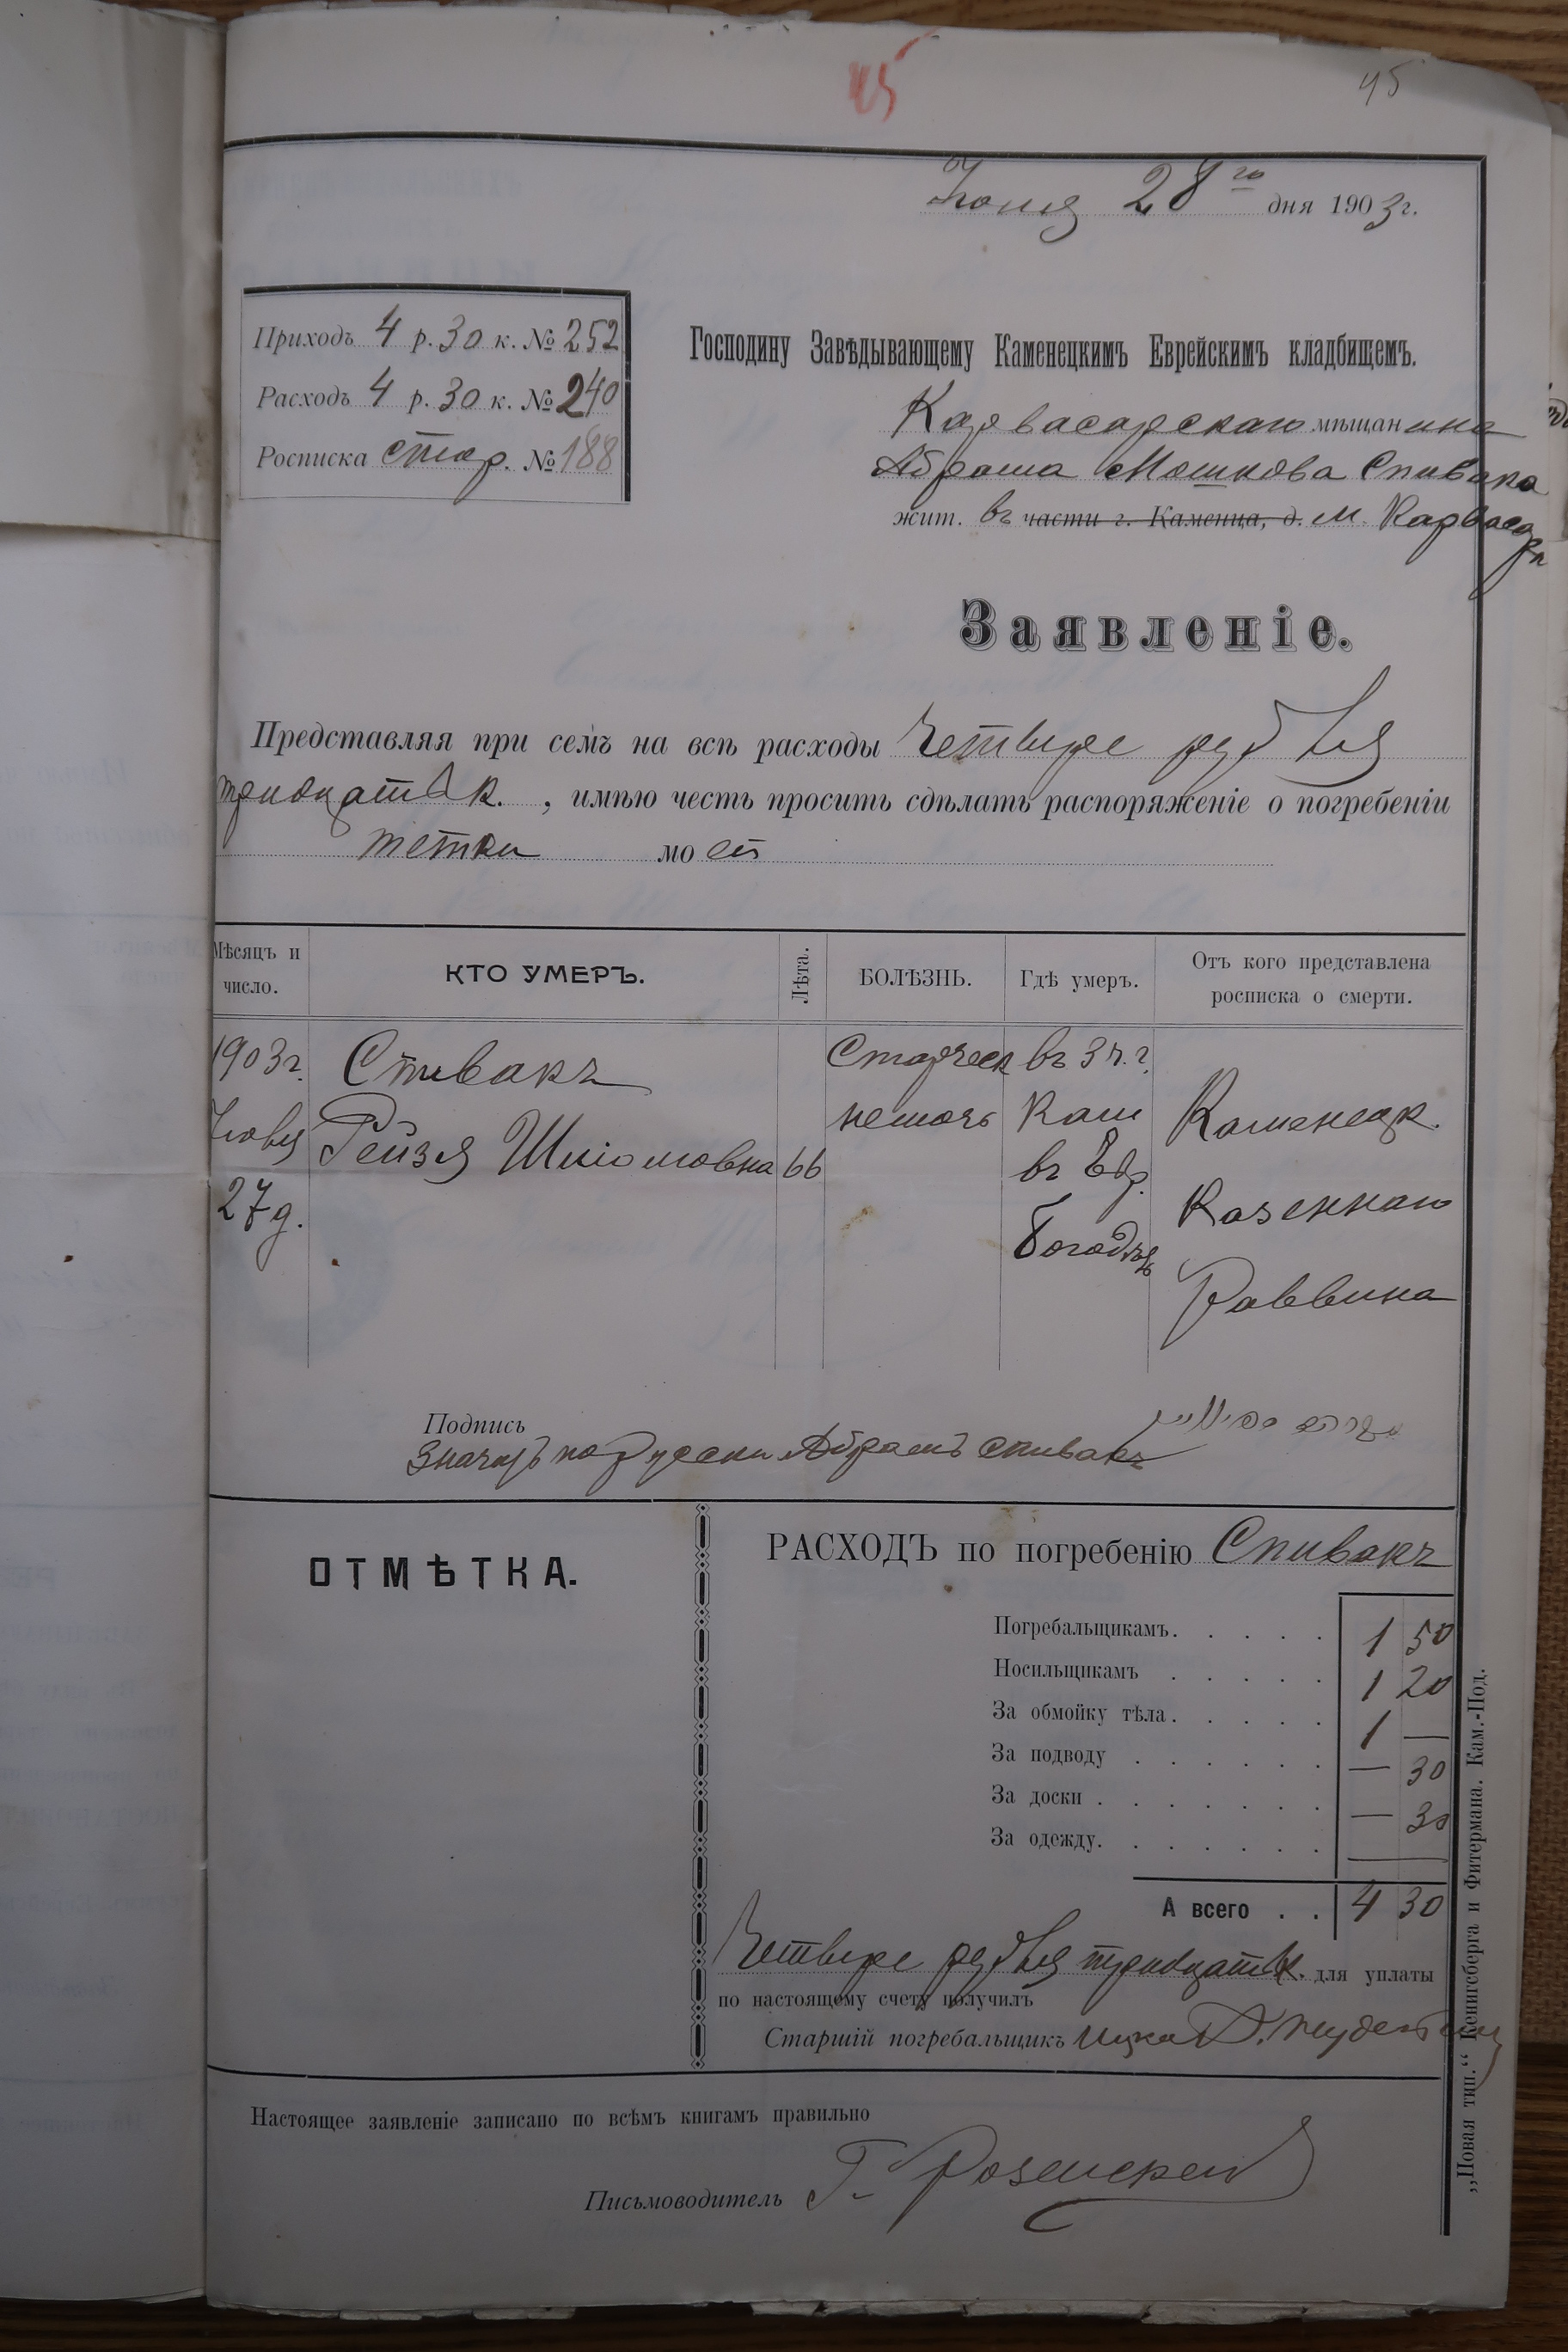 45
45
Іюня 28го дня 1903 г.
Приходъ 4 р. 30 к. № 252
Расходъ 4 р. 30 к. № 240
Росписка стар. № 188
Господину Завѣдывающему Каменецкимъ Еврейскимъ кладбищемъ.
Карвасарскаго мѣщанина
Абрама Мошкова Спивака
жит. въ части г. Каменца, д. м. Карвасарѣ
Заявленіе.
Представляя при семъ на всѣ расходы Четыре рубля
тридцать к. , имѣю честь просить сдѣлать распоряженіе о погребеніи
тетки моей
Мѣсяцъ и число.
КТО УМЕРЪ.
Лѣта.
БОЛѢЗНЬ.
Гдѣ умеръ.
Отъ кого представлена росписка о смерти.
1903 г. Спивакъ Старческ въ 3 ч. г.
Іюня Рейзя Шліомовна 66 немочь Кам Каменецк.
27 д. въ Евр. Казеннаго
Богадѣл Раввина
Подпись
Значитъ по Русски Абрамъ Спивакъ
ОТМѢТКА.
РАСХОДЪ по погребенію Спивакъ
Погребальщикамъ. 1 50
Носильщикамъ 1 20
За обмойку тѣла. 1 —
За подводу — 30
За доски — 30
За одежду.
А всего 4 30
Четыре рубля тридцать к. для уплаты
по настоящему счету получилъ
Старшій погребальщикъ Ицко
Настоящее заявленіе записано по всѣмъ книгамъ правильно
Письмоводитель Г.
„Новая тип.“ Кенигсберга и Фитермана. Кам.-Под.